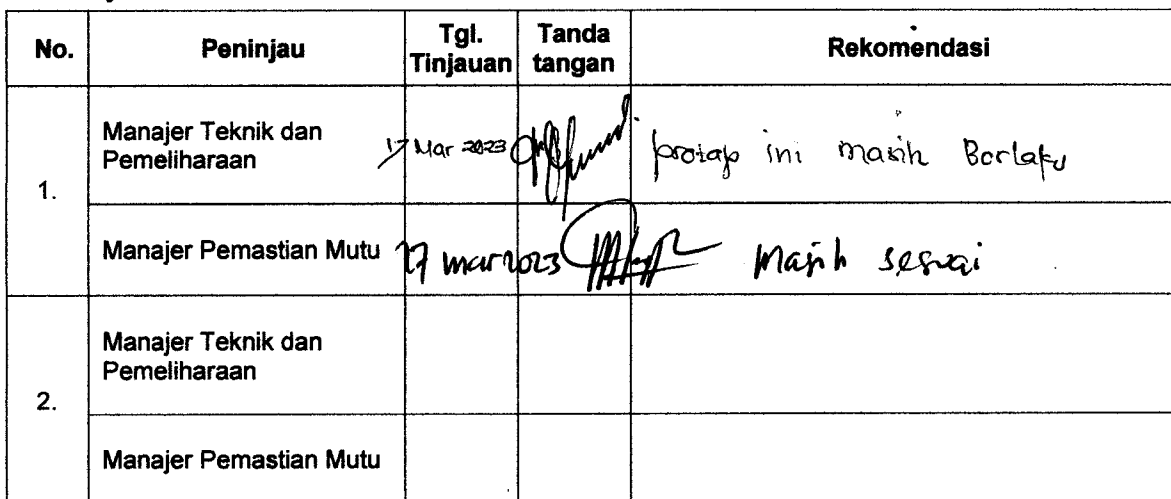 No. Peninjau Tgl. Tinjauan Tanda tangan Rekomendasi
1.
Manajer Teknik dan Pemeliharaan 17 Mar 2023 protap ini masih Berlaku
Manajer Pemastian Mutu 27 mar 2023 Masih sesuai
2.
Manajer Teknik dan Pemeliharaan
Manajer Pemastian Mutu